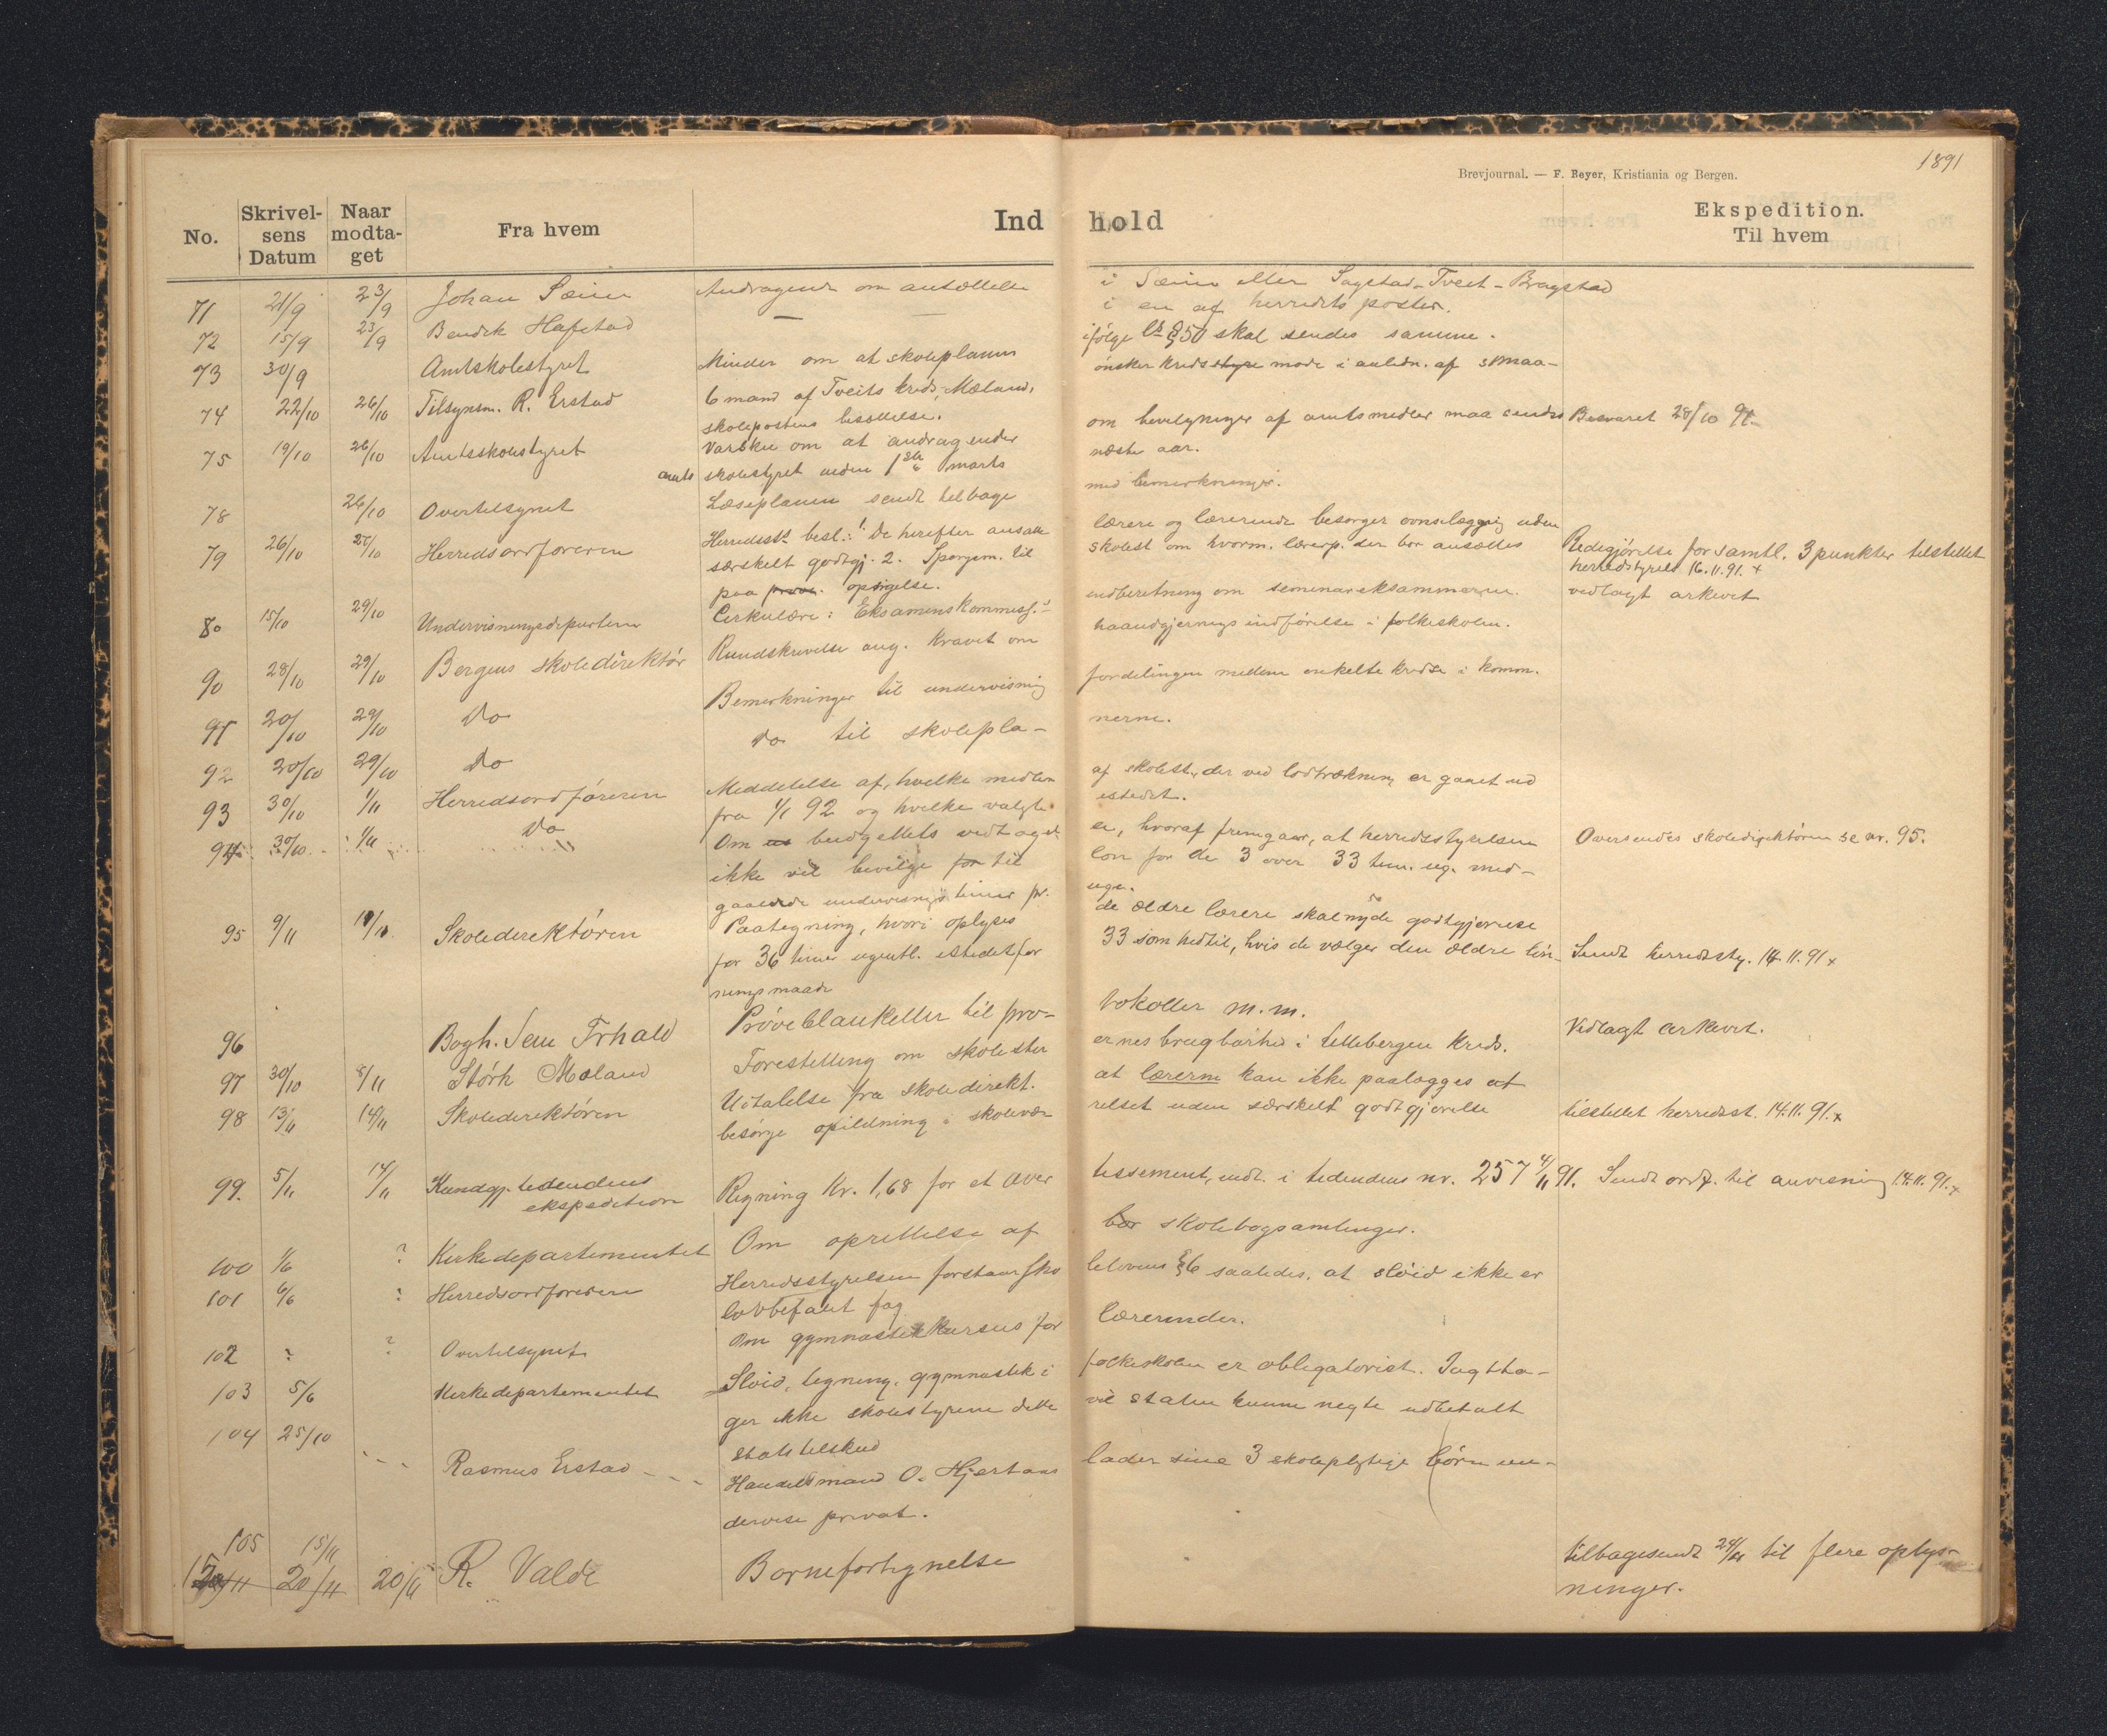 1891
Brevjournal. — F. Beyer, Kristiania og Bergen.
No. Skrivelsens Datum Naar modtaget Fra hvem Indhold Ekspedition. Til hvem
71 21/9 23/9 Johan Sæim Andragende om ansættelse i Sæim eller Sagstad-Tveit-Bragstad
72 15/9 23/9 Bendik Hafstad — — i en af herredets poster.
73 30/9 Amtskolestyret Minder om at skoleplanen ifølge § 50 skal sendes samme.
74 22/10 26/10 Tilsynsm. R. Erstad 6 mand af Tveits kreds, Mæland, ønsker kredsstyre møde i anledn. af smaa-
skolepostens besættelse.
75 19/10 26/10 Amtsskolestyret Varsku om at andragender om bevilgninger af amtsmedler maa sendes Besvaret 28/10 91
amts skolestyret inden 1ste marts næste aar.
78 26/10 Overtilsynet Læseplanen sendt tilbage med bemerkninger.
79 26/10 27/10 Herredsordføreren Herredsst. besl.: 1. De herefter ansatte lærere og lærerinde besørger ovnslægging uden
særskelt godtgj. 2. Spørgsm. til skolest om hvorm. lærerp. der bør ansættes Redegjørelse for samtl. 3 punkter tilstillet
paa opsigelse. herredstyrels 16.11.91. x
80 15/10 29/10 Undervisningsdepartem Cirkulære: Eksamenskommiss.s indberetning om seminareksammeren. vedlagt arkivet
90 28/10 29/10 Bergens skoledirektør Rundskrivelse ang. kravet om haandgjernings indførelse i folkeskolen.
91 20/10 29/10 Do Bemerkninger til undervisning fordelingen mellem enkelte kredse i komm.
92 20/10 29/10 Do Do til skolepla- nerne.
93 30/10 1/11 Herredsordføreren Meddelelse af, hvilke medlem af skolest. der ved lodtrækning er gaaet ud
fra 1/1 92 og hvilke valgte istedet.
94 30/10 1/11 Do Om budgettets vedtagel- se, hvoraf fremgaar, at herredsstyrelsen Oversendes skoledirektøren se nr. 95.
ikke vil bevilge for til løn for de 3 over 33 tim. ug. med-
gaaende undervisnings timer pr. uge.
95 9/11 11/11 Skoledirektøren Paategning, hvori oplyses de ældre lærere skal nyde godtgjørelse
for 36 timer ugentl. istedetfor 33 som hedtil, hvis de vælger den ældre løn- Sendt herredssty. 14.11.91 x
ningsmaade
96 Bogh. Prøveblanketter til pro- tokoller m.m. Vedlagt arkivet.
97 30/10 8/11 Størk Mæland Forestilling om skolester ernes brugbarhed i Lillebergen kreds.
98 13/11 14/11 Skoledirektøren Udtalelse fra skoledirekt. at lærerne kan ikke paalægges at
besørge opildning i skolevær relset uden særskelt godtgjørelse tilstillet herredsst. 14.11.91. x
99. 5/11 14/11 Kundgj. tidendens ekspedition Regning Kr. 1,68 for et aver tissement, indt. i tidendens nr. 257 4/11 91. Sendt ordf. til anvisning 14.11.91. x
100 1/6 ? Kirkedepartementet Om oprettelse af skolebogsamlinger.
101 6/6 ? Herredsordføreren Herredsstyrelsen forstaar sko lelovens § 6 saaledes, at sløid ikke er
lovbefalt fag
102 ? ? Overtilsynet Om gymnastikkursus for lærerinder.
103 5/6 Kirkedepartementet Sløid, tegning, gymnastik i folkeskolen er obligatorisk. Iagtta-
ger ikke skolestyrene dette vil staten kunne negte udbetalt
statstilskud
104 25/10 - - - Rasmus Erstad - - - Handelsmand O. Hjertaas lader sine 3 skolepligtige børn un-
dervise privat.
105 15/11
15/11 20/11 20/11 R. Valde Børnefortegnelse tilbagesendt 24/11 til flere oplys-
ninger.